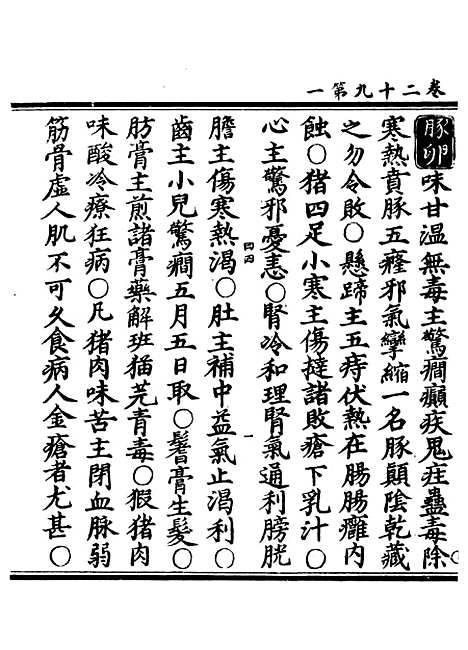 卷二十九第一
豚卵味甘溫無毒主驚癎癲疾鬼疰蠱毒除
寒熱賁豚五癃邪氣攣縮一名豚顛陰乾藏
之勿令敗〇懸蹄主五痔伏熱在腸腸癰內
蝕〇猪四足小寒主傷撻諸敗瘡下乳汁〇
心主驚邪憂恚〇腎冷和理腎氣通利膀胱
四四 一
膽主傷寒熱渴〇肚主補中益氣止渴利〇
齒主小兒驚癎五月五日取〇鬐膏生髮〇
肪膏主煎諸膏藥解班猫芫青毒〇猳猪肉
味酸冷療狂病〇凡猪肉味苦主閉血脉弱
筋骨虛人肌不可久食病人金瘡者尤甚〇